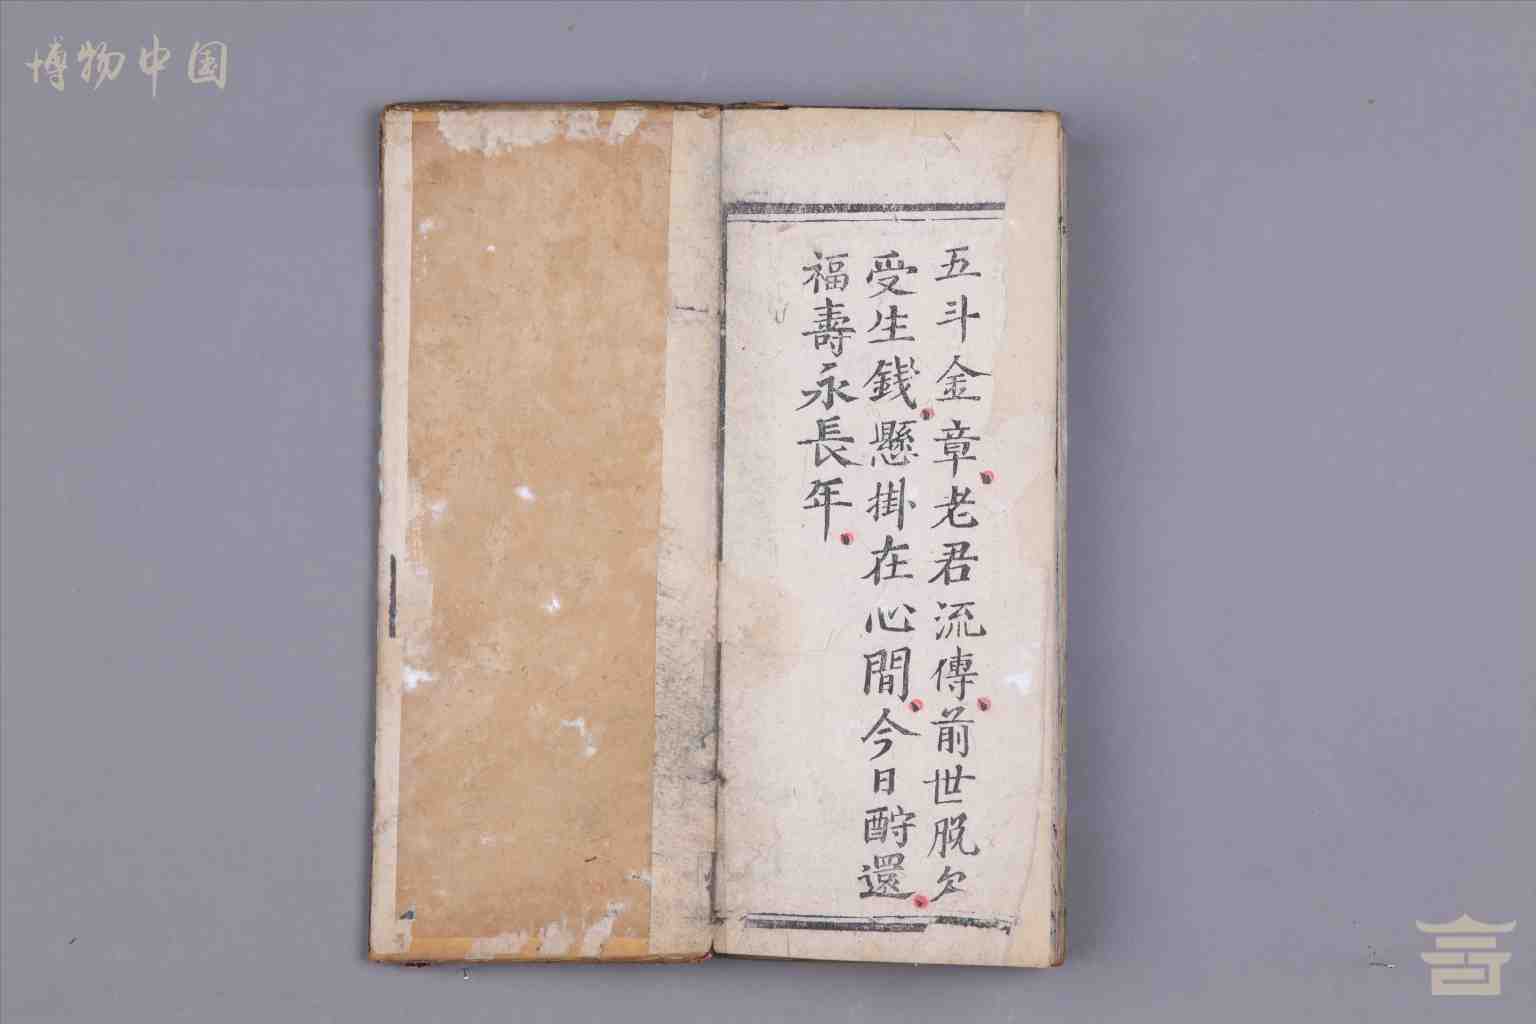 博物中国
五斗金章老君流傳前世脱欠
受生錢懸掛在心間今日酧還
福壽永長年